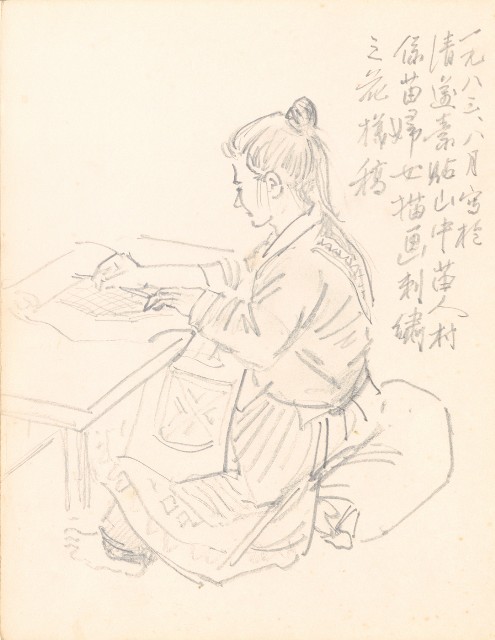 一九八三、八月寫於
清邁素貼山中苗人村
係苗婦女描画刺繡
之花樣稿